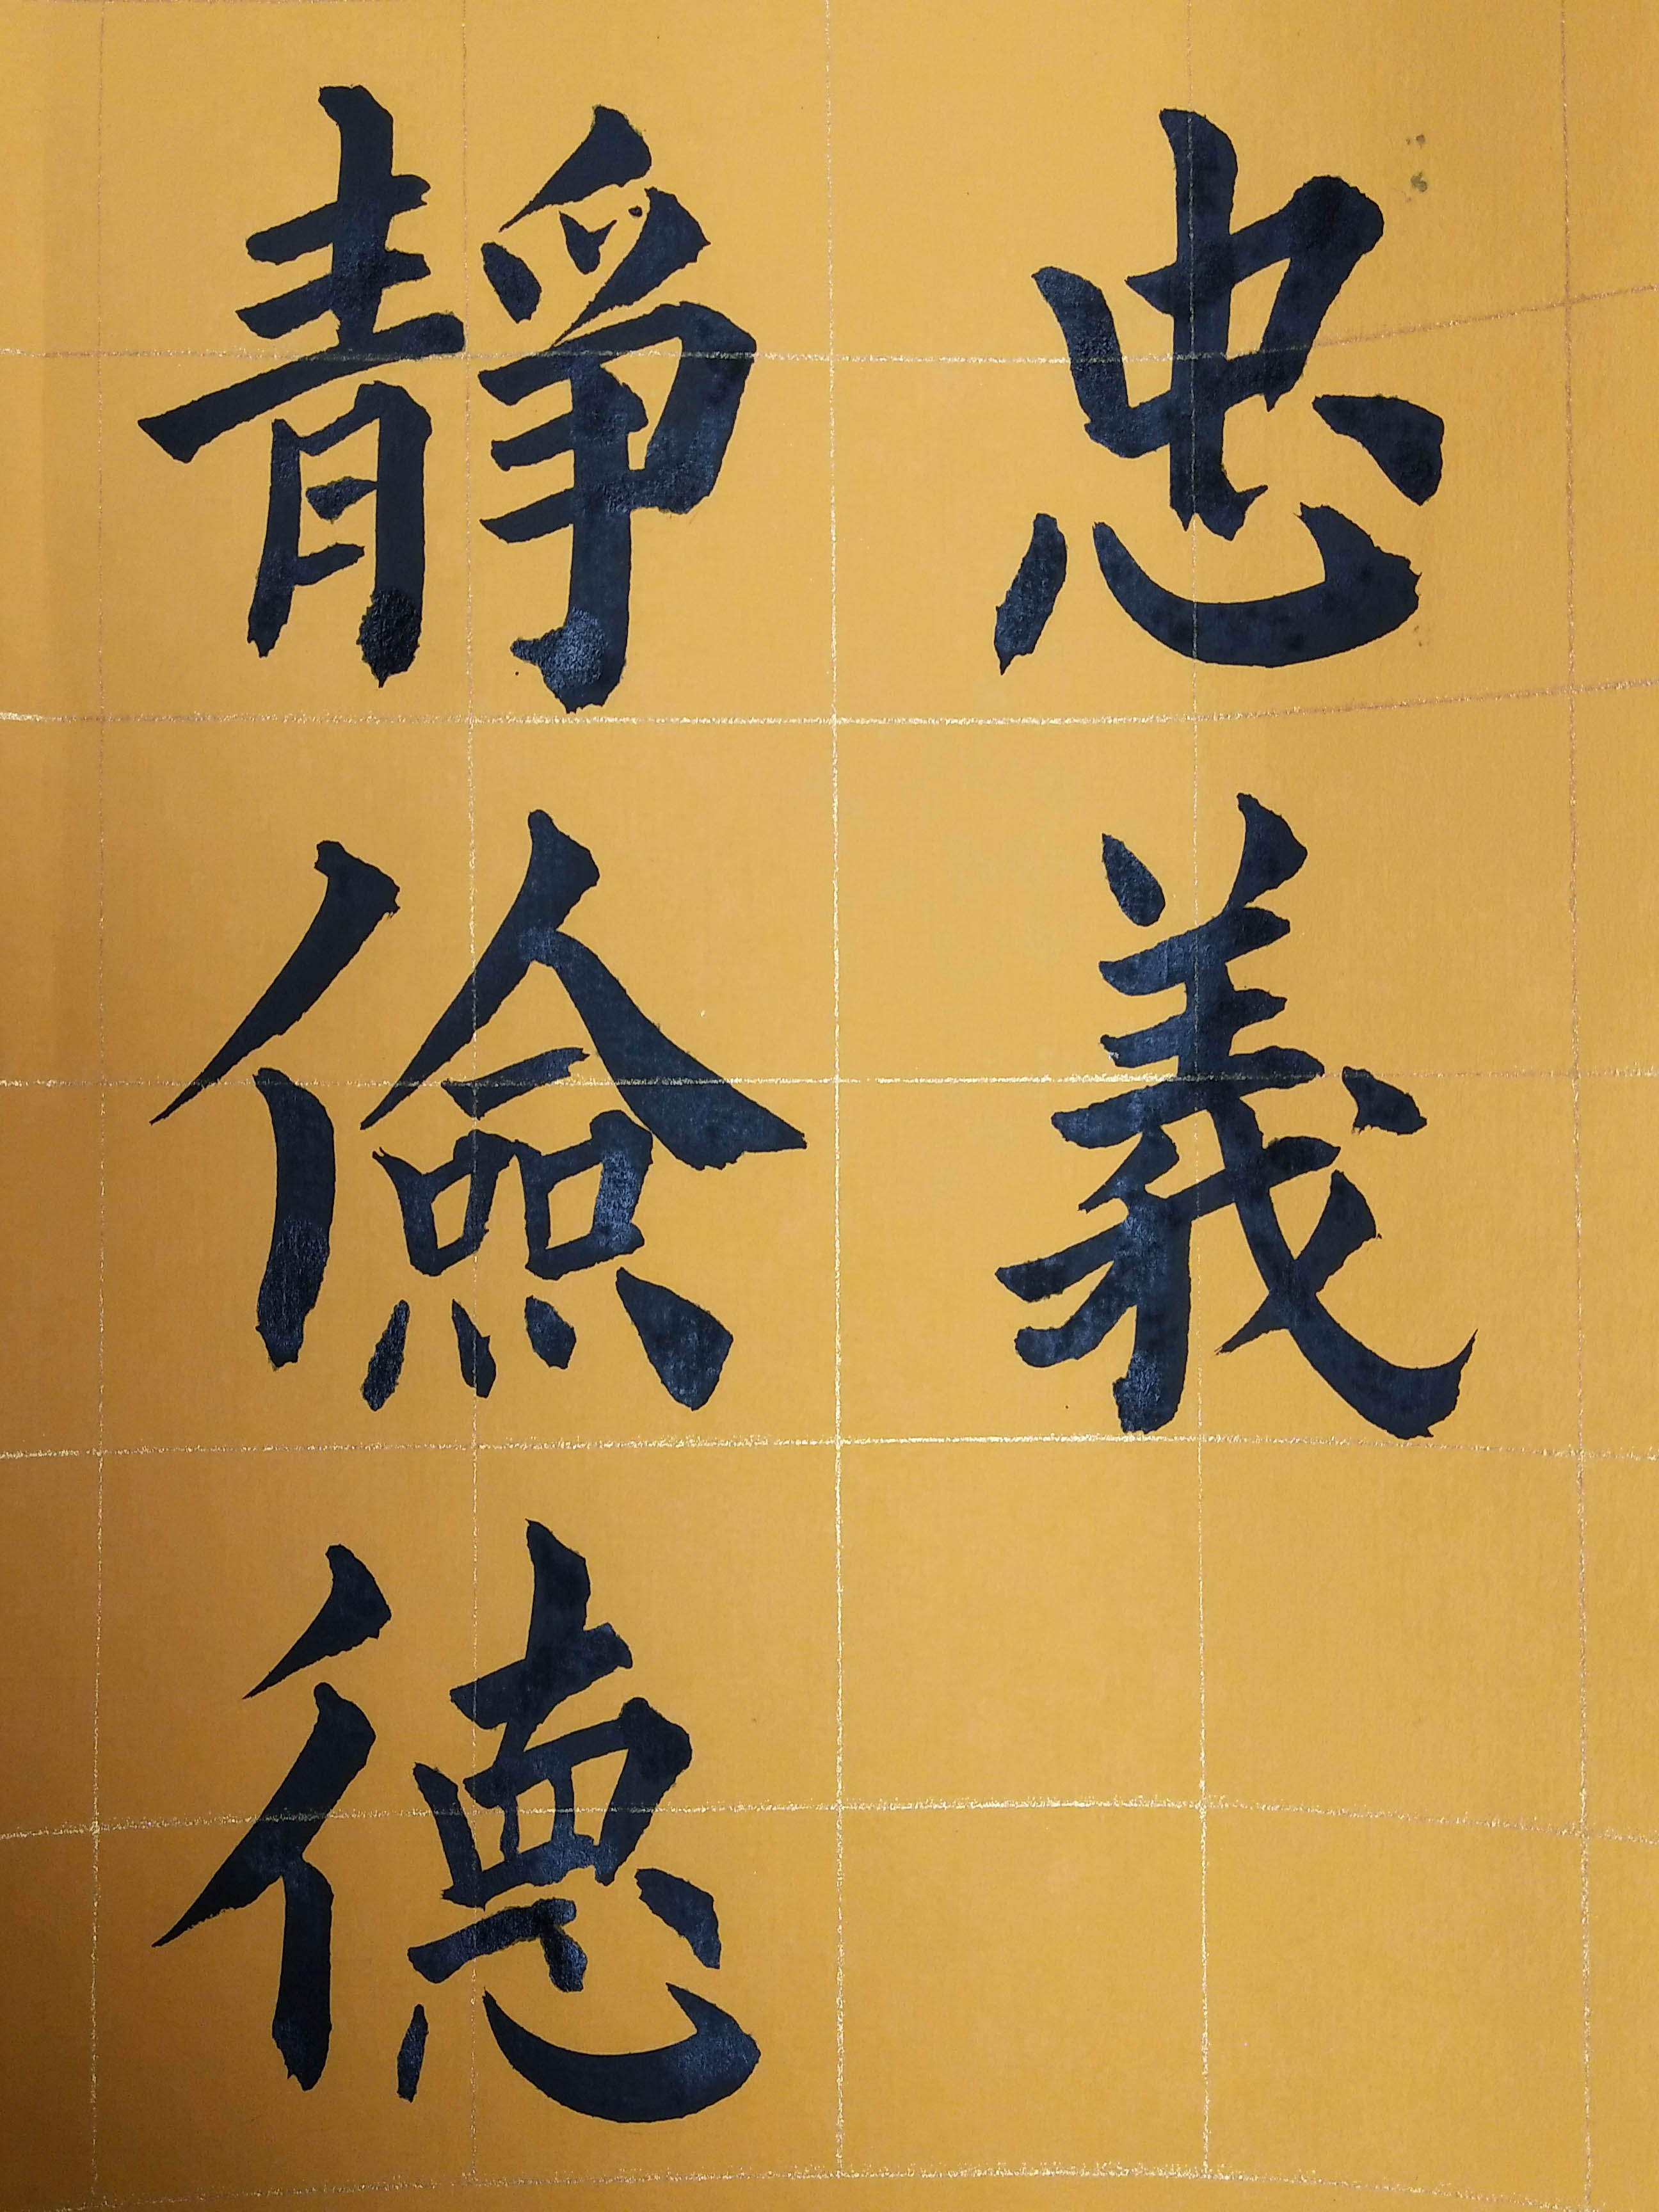 忠義
靜儉德